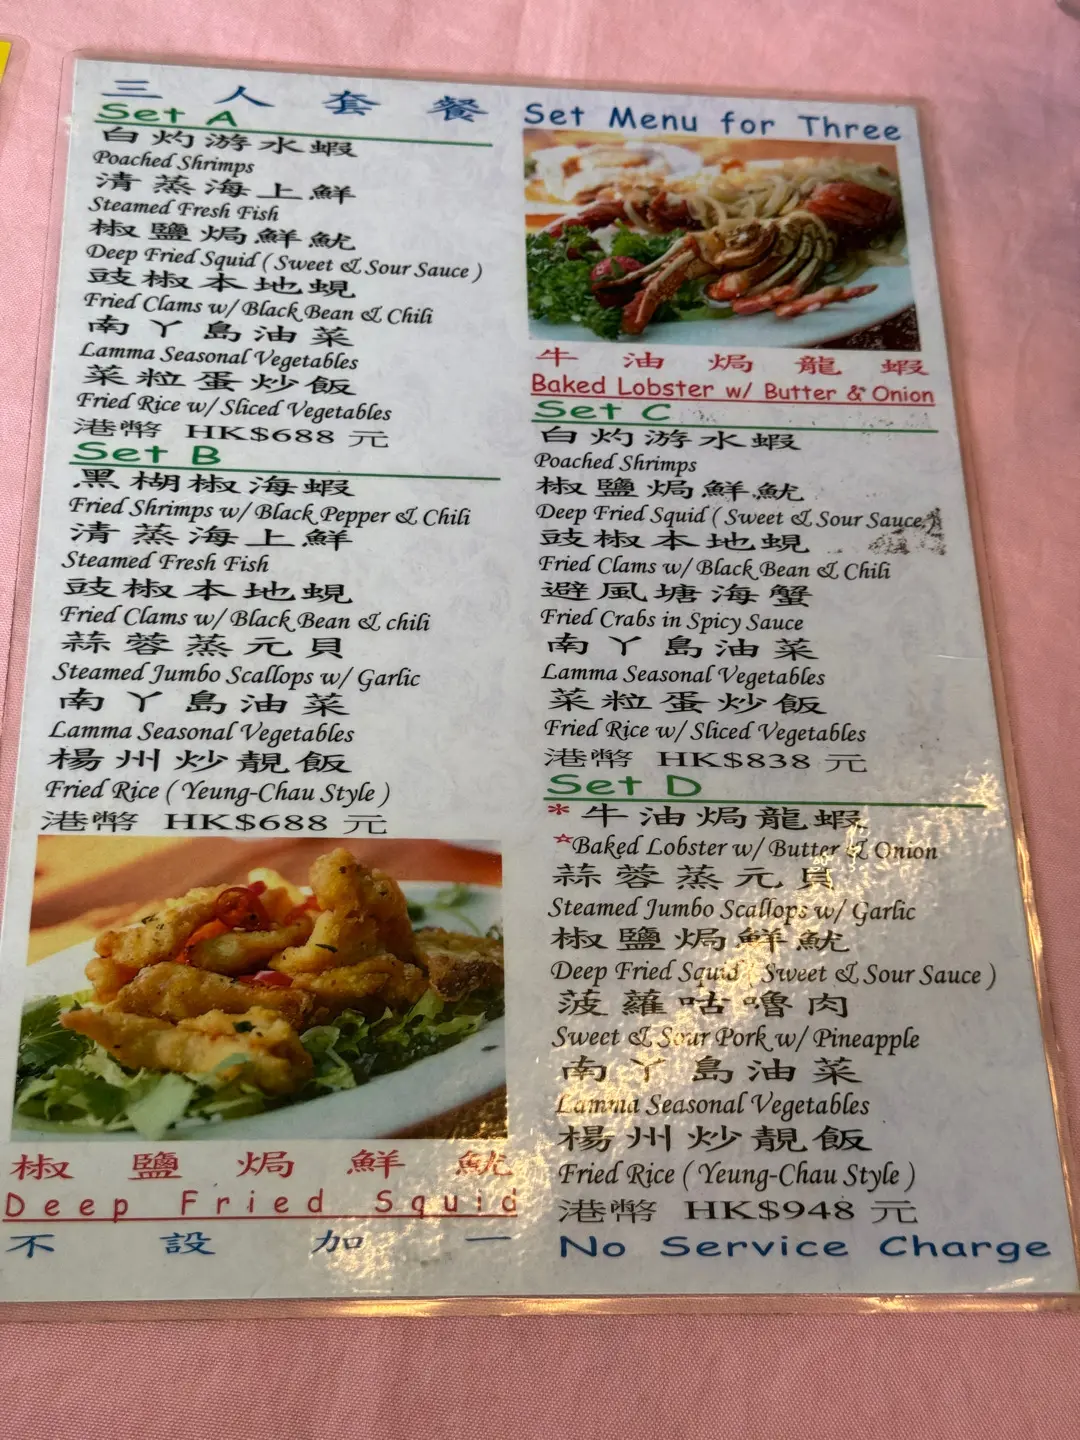 三人套餐 Set Menu for Three
Set A
白灼游水蝦
Poached Shrimps
清蒸海上鮮
Steamed Fresh Fish
椒鹽焗鮮魷
Deep Fried Squid ( Sweet & Sour Sauce )
豉椒本地蜆
Fried Clams w/ Black Bean & Chili
南丫島油菜
Lamma Seasonal Vegetables
菜粒蛋炒飯
Fried Rice w/ Sliced Vegetables
港幣 HK$688 元
Set B
黑椒海蝦
Fried Shrimps w/ Black Pepper & Chili
清蒸海上鮮
Steamed Fresh Fish
豉椒本地蜆
Fried Clams w/ Black Bean & chili
蒜蓉蒸元貝
Steamed Jumbo Scallops w/ Garlic
南丫島油菜
Lamma Seasonal Vegetables
楊州炒靚飯
Fried Rice ( Yeung-Chau Style )
港幣 HK$688 元
椒鹽焗鮮魷
Deep Fried Squid
不設加一
牛油焗龍蝦
Baked Lobster w/ Butter & Onion
Set C
白灼游水蝦
Poached Shrimps
椒鹽焗鮮魷
Deep Fried Squid ( Sweet & Sour Sauce )
豉椒本地蜆
Fried Clams w/ Black Bean & Chili
避風塘海蟹
Fried Crabs in Spicy Sauce
南丫島油菜
Lamma Seasonal Vegetables
菜粒蛋炒飯
Fried Rice w/ Sliced Vegetables
港幣 HK$838 元
Set D
*牛油焗龍蝦
*Baked Lobster w/ Butter & Onion
蒜蓉蒸元貝
Steamed Jumbo Scallops w/ Garlic
椒鹽焗鮮魷
Deep Fried Squid ( Sweet & Sour Sauce )
菠蘿咕嚕肉
Sweet & Sour Pork w/ Pineapple
南丫島油菜
Lamma Seasonal Vegetables
楊州炒靚飯
Fried Rice ( Yeung-Chau Style )
港幣 HK$948 元
No Service Charge